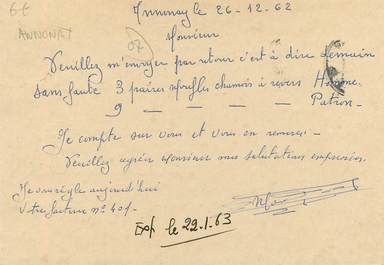 6€
ANNONAY
07
Annonay le 26-12-62
Monsieur
Veuillez m'envoyer par retour c'est à dire demain
sans faute 3 paires moufles chamois à revers Homme.
9 — — — — — Patron.
Je compte sur vous et vous en remercie.
Veuillez agréer Monsieur mes salutations empressées.
Je vous règle aujourd'hui
votre facture n° 401.
Exp le 22.1.63